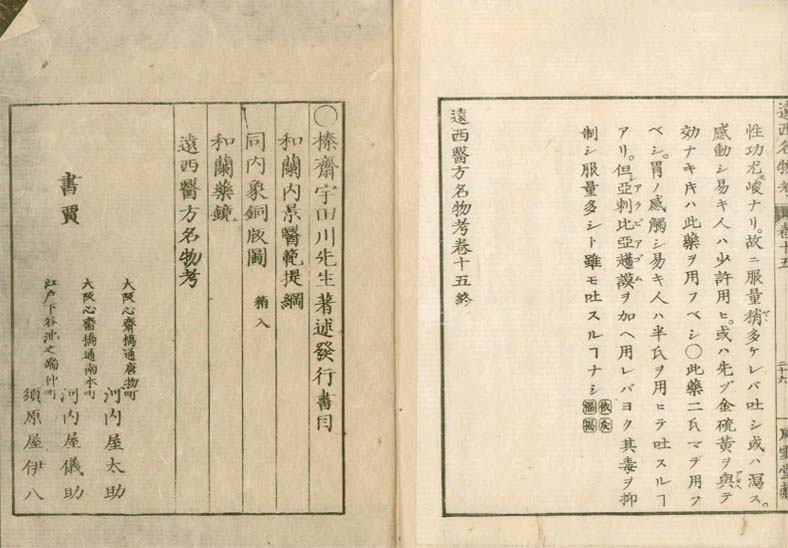 遠西名物考
卷十五
二十六
性功尤峻ナリ。故ニ服量稍多ケレバ吐シ或ハ瀉ス。
感動シ易キ人ハ少許用ヒ。或ハ先ヅ金硫黄ヲ與テ
アタヘ
効ナキ片ハ此藥ヲ用フベシ○此藥二氏マデ用フ
ベシ。胃ノ感觸シ易キ人ハ半氏ヲ用ヒテ吐スルヿ
アリ。但亞剌比亞護謨ヲ加ヘ用レバヨク其毒ヲ抑
アラビアゴム
制シ服量多シト雖モ吐スルヿナシ
遠西醫方名物考卷十五終
○榛齋宇田川先生著述發行書目
和蘭内景醫範提綱
同内象銅版圖 箱入
和蘭藥鏡
遠西醫方名物考
書賈
大阪心齋橋通唐物町 河内屋太助
大阪心齋橋通南本町 河内屋儀助
江戸下谷池之端仲町 須原屋伊八